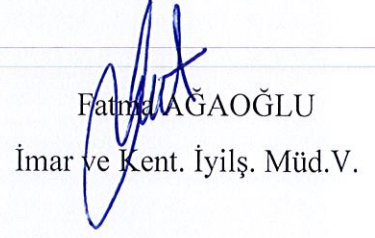 Fatma AĞAOĞLU
İmar ve Kent. İyilş. Müd.V.